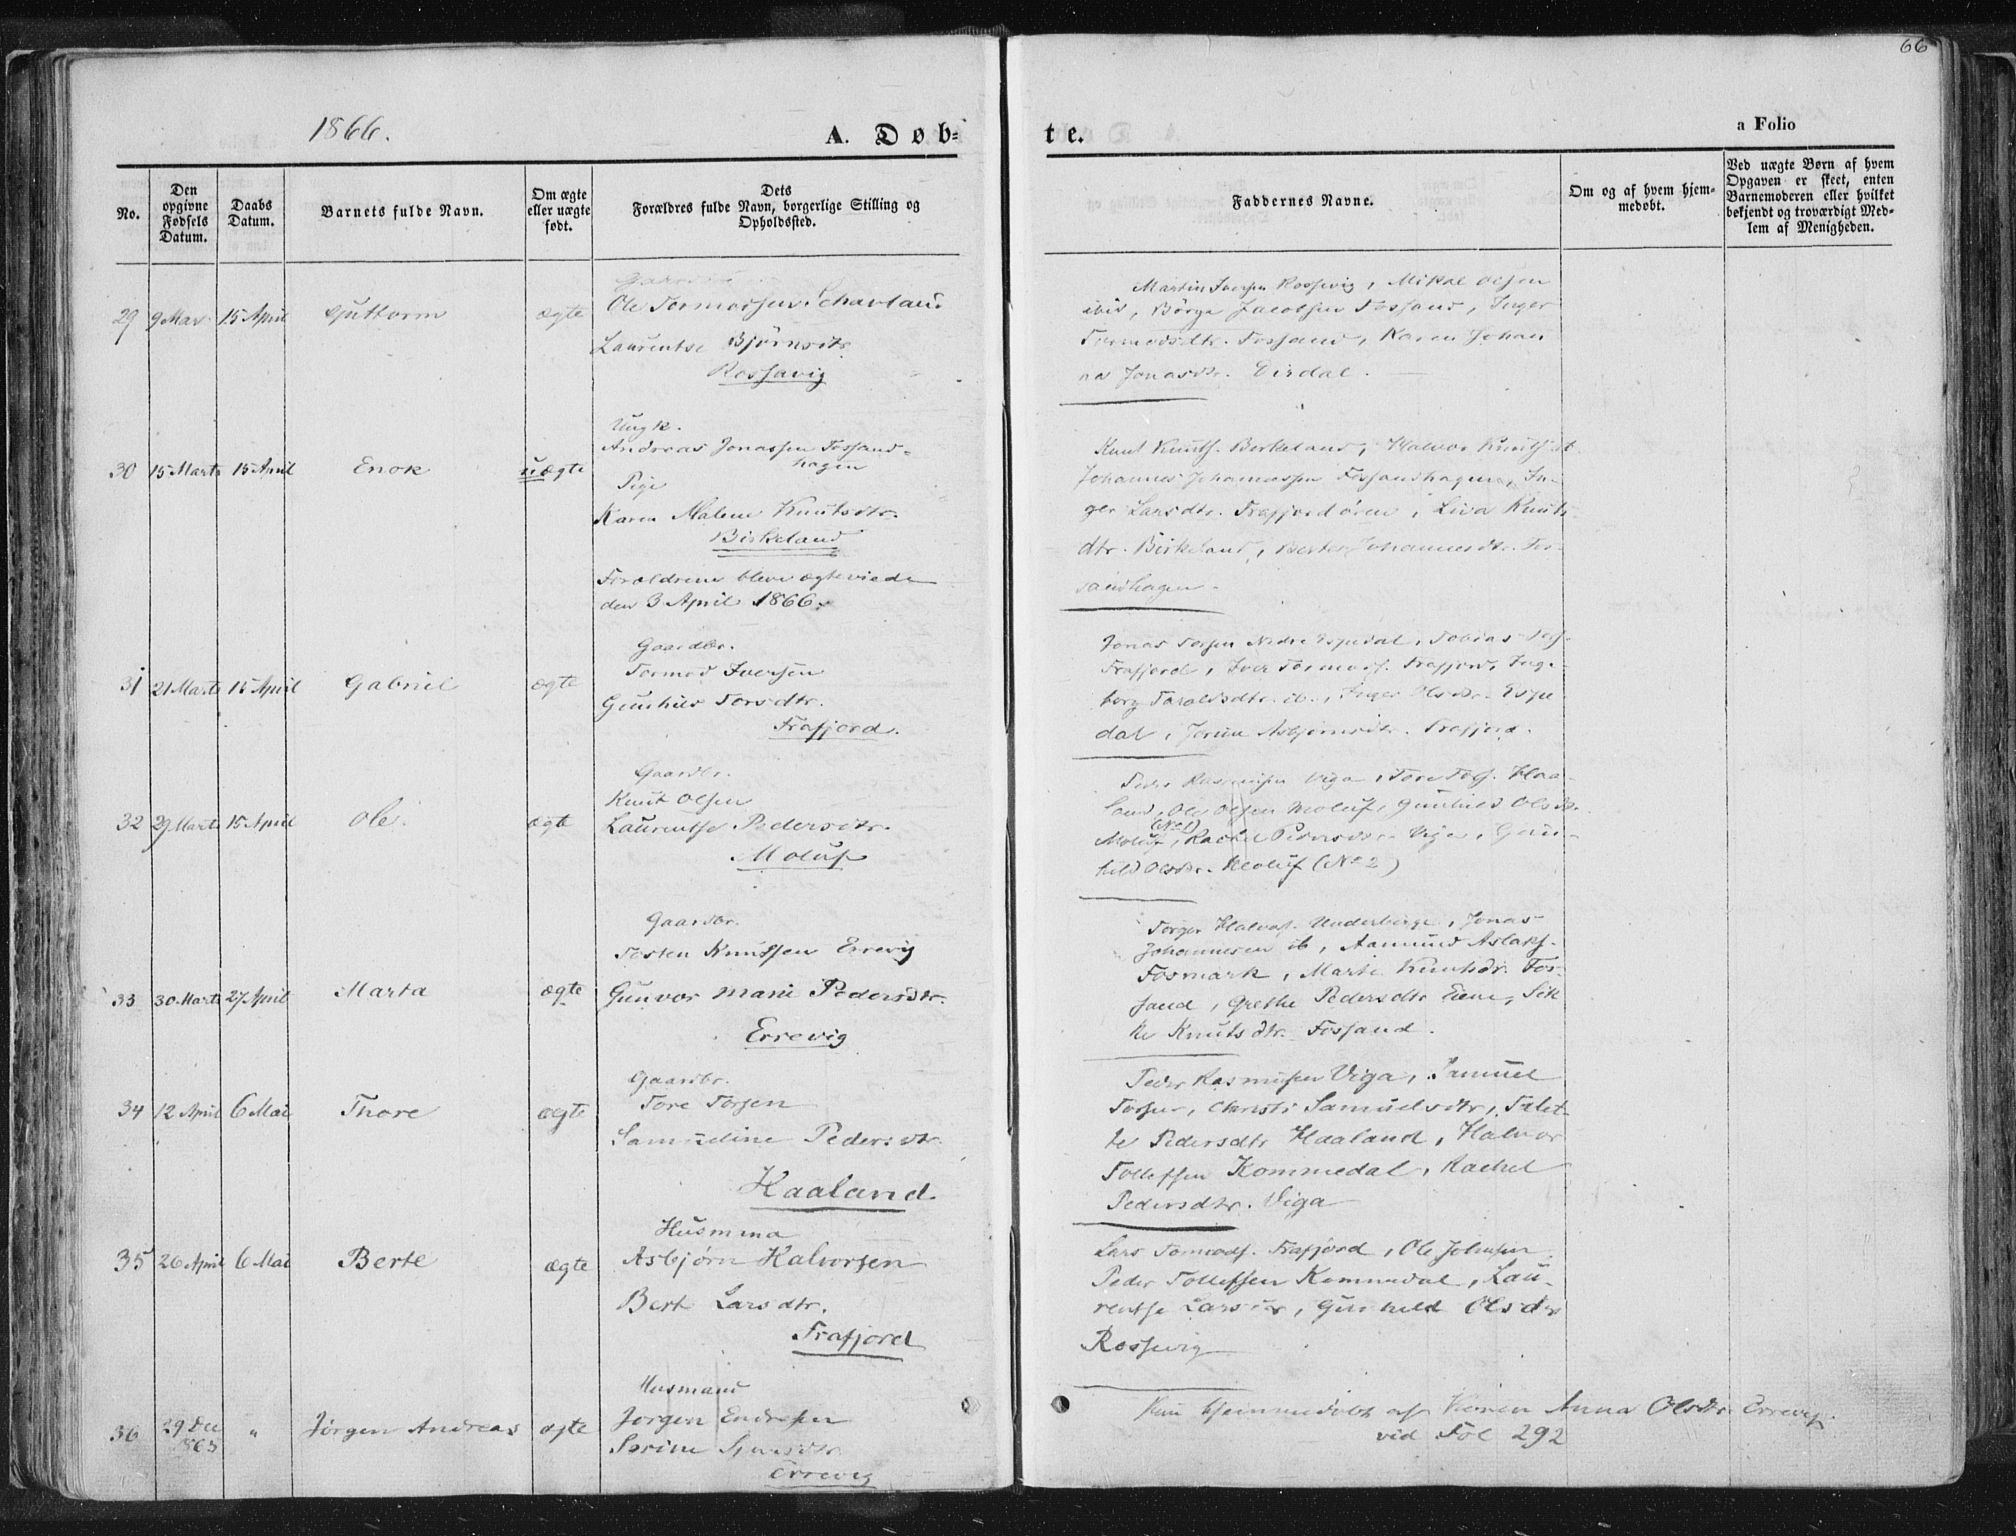 66
1866.
A. Døb=
te.
a Folio
No.
Den opgivne Fødsels Datum.
Daabs Datum.
Barnets fulde Navn.
Om ægte eller uægte født.
Dets Forældres fulde Navn, borgerlige Stilling og Opholdssted.
Faddernes Navne.
Om og af hvem hjemmedøbt.
Ved uægte Børn af hvem Opgaven er skeet, enten Barnemoderen eller hvilket bekjendt og troværdigt Medlem af Menigheden.
29 9 Mar 15 April Guttorm ægte
Ole Tormodsen
Laurentse Bjørnsdtr.
Rossavig
Martin Iversen Rossevig, Mikal Olsen
ibid, Børge Jacobsen Fossand, Inger
Tormodsdtr. Fossand, Karen Johan
na Jonasdtr. Dirdal.
30 15 Marts 15 April Enok uægte
Ungk.
Andreas Jonassen Fossand-
hagen
Pige
Karen Malene Knutsdtr.
Birkeland
Forældrene bleve ægteviede
den 3 April 1866.
Knut Knuts. Birkeland, Halvor Knuts. ib
Johannes Johannessen Fossandhagen, In-
ger Larsdtr. Frafjordøren, Liva Knuts
dtr. Birkeland, Johannesdtr. Fos-
sandhagen.
31 21 Marts 15 April Gabriel ægte
Gaardbr.
Tormod Iversen
Gunhild Torsdtr.
Frafjord.
Jonas Torsen Nedre Espedal, Tobias
Frafjord, Iver Tormods. Frafjord, Inge-
borg Taraldsdtr. ib., Inger Olsdtr. Espe
dal, Jorine Asbjørnsdtr. Frafjord.
32 29 Marts 15 April Ole. ægte
Gaardbr.
Knut Olsen
Laurentse Pedersdtr.
Moluf
Peder Rasmussen Viga, Tore Tors. Haa-
land, Ole Olsen Moluf, Gunhild Olsdtr.
(No 1)
Moluf, Rachel Pedersdtr. Viga, Gun-
hild Olsdtr. Moluf (No 2)
33 30 Marts 27 April Marta ægte
Gaardbr.
Tosten Knutsen Errevig
Gunvor Marie Pedersdtr.
Errevig
Torger Halvors. Underberge, Jonas
Johannesen ib, Aamund Aslaks.
Fosmark, Marte Knutsdtr. Fos-
sand, Grethe Pedersdtr Eiene, Sik
ke Knutsdtr. Fossand.
34 12 April 6 Mai Thore ægte
Gaardbr.
Tore Torsen
Samueline Pedersdtr.
Haaland
Peder Rasmussen Viga, Samuel
Torsen, Christi Samuelsdtr, Talet-
te Pedersdtr Haaland, Halvor
Tollefsen Kommedal, Rachel
Pedersdtr. Viga
35 26 April 6 Mai Berte ægte
Husmand
Asbjørn Halvorsen
Berte Larsdtr.
Frafjord
Lars Tormods. Frafjord, Ole Johnsen
Peder Tollefsen Kommedal, Lau-
rentse Larsdtr, Gunhild Olsdtr
Rossevig
36 29 Dec 1865 " Jørgen Andreas ægte
Husmand
Jørgen Endresen
Serine
Errevig
Kun hjemmedøbt af Karen Anna Olsdtr. Errevig.
vid Fol 292